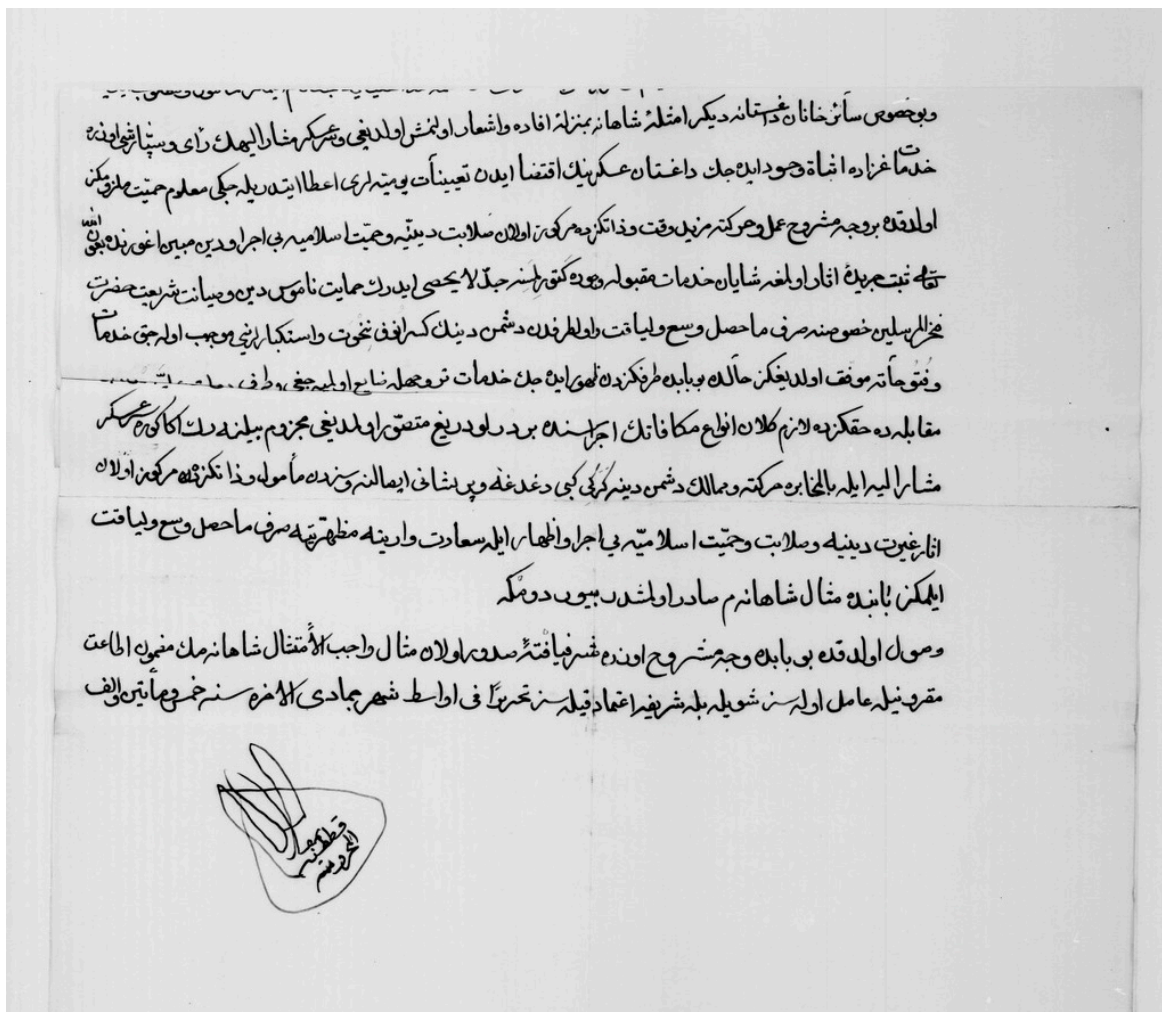 وبو خصوص سائر خانان داغستانه ديكر امثلۀ شاهانه بمنزلۀ افاده واشعار اولنمش اولديغى وسرعسكر مشار اليهك رأى و اوزره
خدمات غزاده اثباة وجود ايده جك داغستان عسكرينك اقتضا ايدن تعيينات يوميه لرى اعطا ايتديريله جكى معلوم حميت ملزومكز
اولدقده بروجه مشروح عمل وحركته مزيد وقت وذاتكزده مركوز اولان صلابت دينيّه وحميّت اسلاميه يى اجرا ودين مبين اغورنده بعون الله
تعالى ثبت جريدۀ اثار اولمغه شايان خدمات مقبوله وجوده كتورلمسنه جدّ لا يحصى ايدرك حمايت ناموس دين وصيانت شريعت حضرت
فخر المرسلين خصوصنه صرف ما حصل وسع ولياقت واولطرفدن دشمن دينك كسر انف نخوت واستكبارلرينى موجب اوله جق خدمات
وفتوحاته موفق اولديغكز حالده بو بابده طرفكزدن ظهور ايده جك خدمات نو وجهله ضايع اولميه جغى وطرف
مقابله ده حقكزده لازم كلان انواع مكافاتك اجراسنده بر درلو دريغ متصوّر اولمديغى مجزوم بيلنه رك اكا كوره سرعسكر
مشار اليه ايله بالمخابره حركته وممالك دشمن دينه كركى كبى دغدغه وپريشانى ايصالنه وسزدن مأمول وذاتكزده مركوز اولان
اثار غيرت دينيه وصلابت وحميّت اسلاميّه يى اجرا واظهار ايله سعادت دارينه مظهريته صرف ما حصل وسع ولياقت
ايلمكز بابنده مثال شاهانه م صادر اولمشدر بيوردومكه
وصول اولدقده بو بابده وجه مشروح اوزره شرفيافتۀ صدور اولان مثال واجب الامتثال شاهانه مك مضمون اطاعت
مقرونيله عامل اوله سز شويله بله سز علامت شريفه اعتماد قيله سز تحريرًا فى اواسط شهر جمادى الاخره سنه خمس ومأتين والف
قسطنطنيه
المحروسه